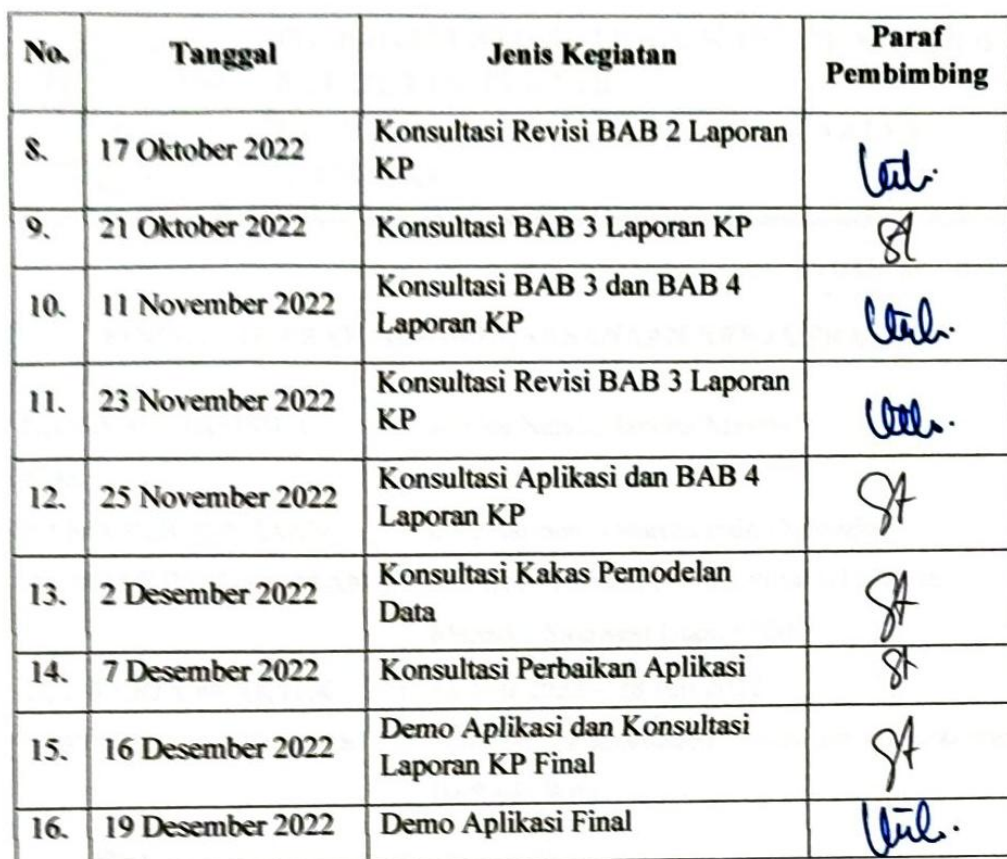 No. Tanggal Jenis Kegiatan Paraf Pembimbing
8. 17 Oktober 2022 Konsultasi Revisi BAB 2 Laporan
KP
9. 21 Oktober 2022 Konsultasi BAB 3 Laporan KP
10. 11 November 2022 Konsultasi BAB 3 dan BAB 4
Laporan KP
11. 23 November 2022 Konsultasi Revisi BAB 3 Laporan
KP
12. 25 November 2022 Konsultasi Aplikasi dan BAB 4
Laporan KP
13. 2 Desember 2022 Konsultasi Kakas Pemodelan
Data
14. 7 Desember 2022 Konsultasi Perbaikan Aplikasi
15. 16 Desember 2022 Demo Aplikasi dan Konsultasi
Laporan KP Final
16. 19 Desember 2022 Demo Aplikasi Final